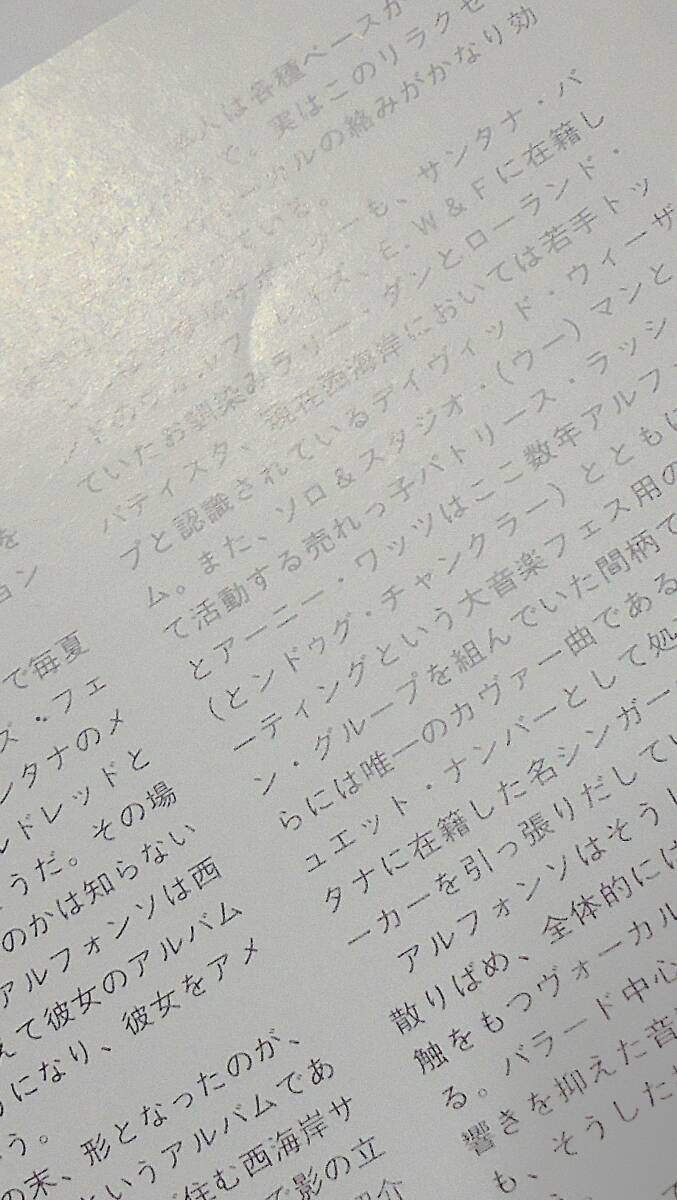 を
ョン
で毎夏
ズ・フェ
ンタナのメ
ルドレッドと
うだ。その場
のかは知らない
アルフォンソは西
えて彼女のアルバム
になり、彼女をアメ
う。
の末、形となったのが、
というアルバムであ
住む西海岸サ
で影の立
紹介
人は各種ベースが
と。実はこのリラクゼ
ーカルの絡みがかなり効
っている。
も、サンタナ・バ
E.W&Fに在籍し
ていたお馴染みラリー・ダンとローランド・
バティスタ、現在西海岸においては若手トッ
プと認識されているデイヴィッド・ウィーザ
ム。また、ソロ&スタジオ・(ウー)マンと
て活動する売れっ子パトリース・ラッシ
とアーニー・ワッツはここ数年アルフ
(とンドゥグ・チャンクラー)とともに
ーティングという大音楽フェス用の
ン・グループを組んでいた間柄で
らには唯一のカヴァー曲である
ュエット・ナンバーとして処
タナに在籍した名シンガー
ーカーを引っ張りだしてい
アルフォンソはそうし
散りばめ、全体的には
触をもつヴォーカル
る。バラード中心
響きを抑えた音
も、そうした